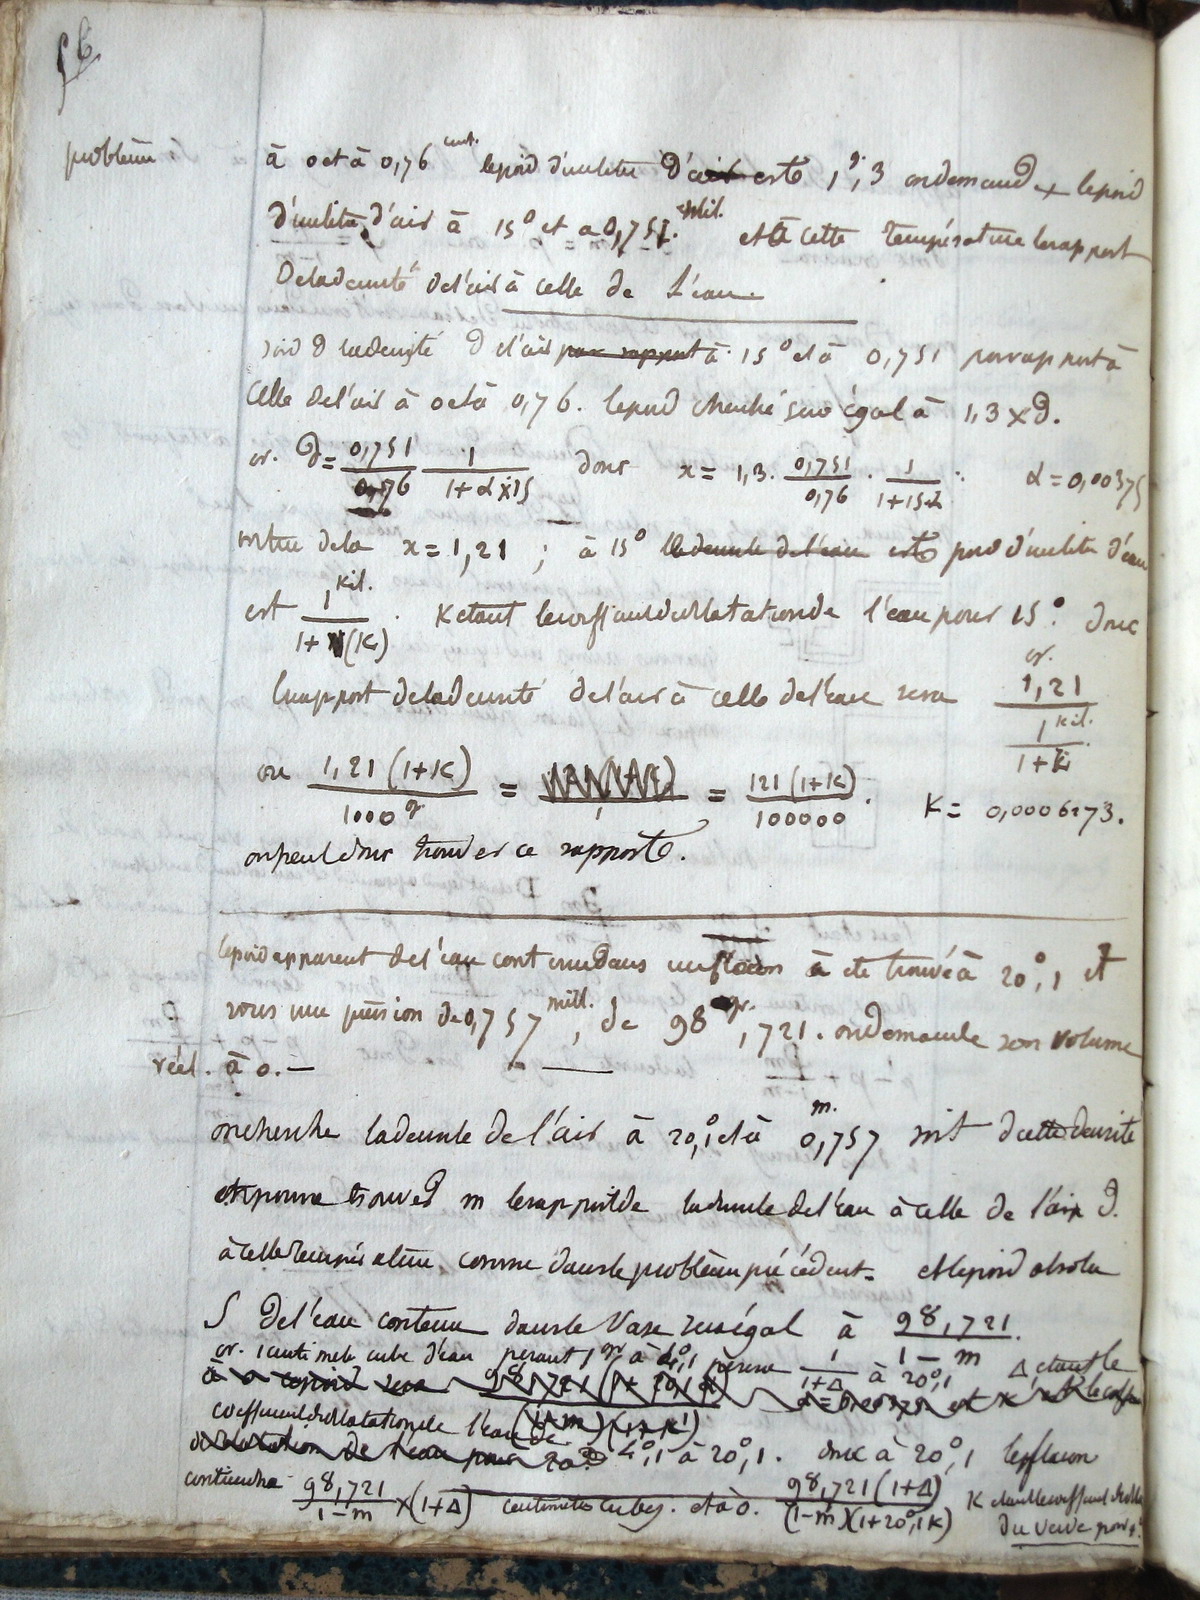 56
problème
à 0 et à 0,76 cent. le poid d'un litre d'air est 1g,3 on demande x le poid
d'un litre d'air à 15° et a 0,751. mil. et à cette température le rapport
De la densité de l'air à celle de l'eau.
soid d la densité d de l'air par rapport à 15° et à 0,751 par rapport à
Celle de l'air à 0 et à 0,76. le poid cherché sera égal à 1,3 x d.
or. d = 0,751/0,76 1/1+α x 15 donc x = 1,3. 0,751/0,76 . 1/1+15α : α = 0,00375
x = 1,21 ; à 15° la densité de l'eau est poid d'un litre d'eau
est 1 kil./1+(K) . K étant le coeff. de dilatation de l'eau pour 15°. donc
le rapport de la densité de l'air à celle de l'eau sera or. 1,21/1 kil./1+k
ou 1,21 (1+K)/1000 g = = 121 (1+K)/100000 . K = 0,0006273.
on peut donc trouver ce rapport.
le poid apparent de l'eau contenue dans un flacon à été trouvé à 20°,1 et
sous une préssion de 0,757 mill., de 98 gr.,721. on demande son volume
réel. à 0. —
on cherche la densité de l'air à 20°,1 et à 0,757 m. soit d cette densité
et pourra trouver m le rapport de la densité de l'eau à celle de l'air d.
à celle température comme dans le problème précédent. et le poid absolu
S de l'eau contenue dans le Vase sera égal à 98,721/1 — m.
or. 1 centimetre cube d'eau pesant 1 gr à 4°,1 pesera 1/1+Δ à 20°,1 Δ étant le
coefficient de dilatation de l'eau de 4°,1 à 20°,1. donc à 20°,1 le flacon
contiendra 98,721/1-m x (1+Δ) centimetres cubes. et à 0. 98,721 (1+Δ)/(1-m)(1+20°,1 K) K étant le coefficient de
du verre pour 1°.